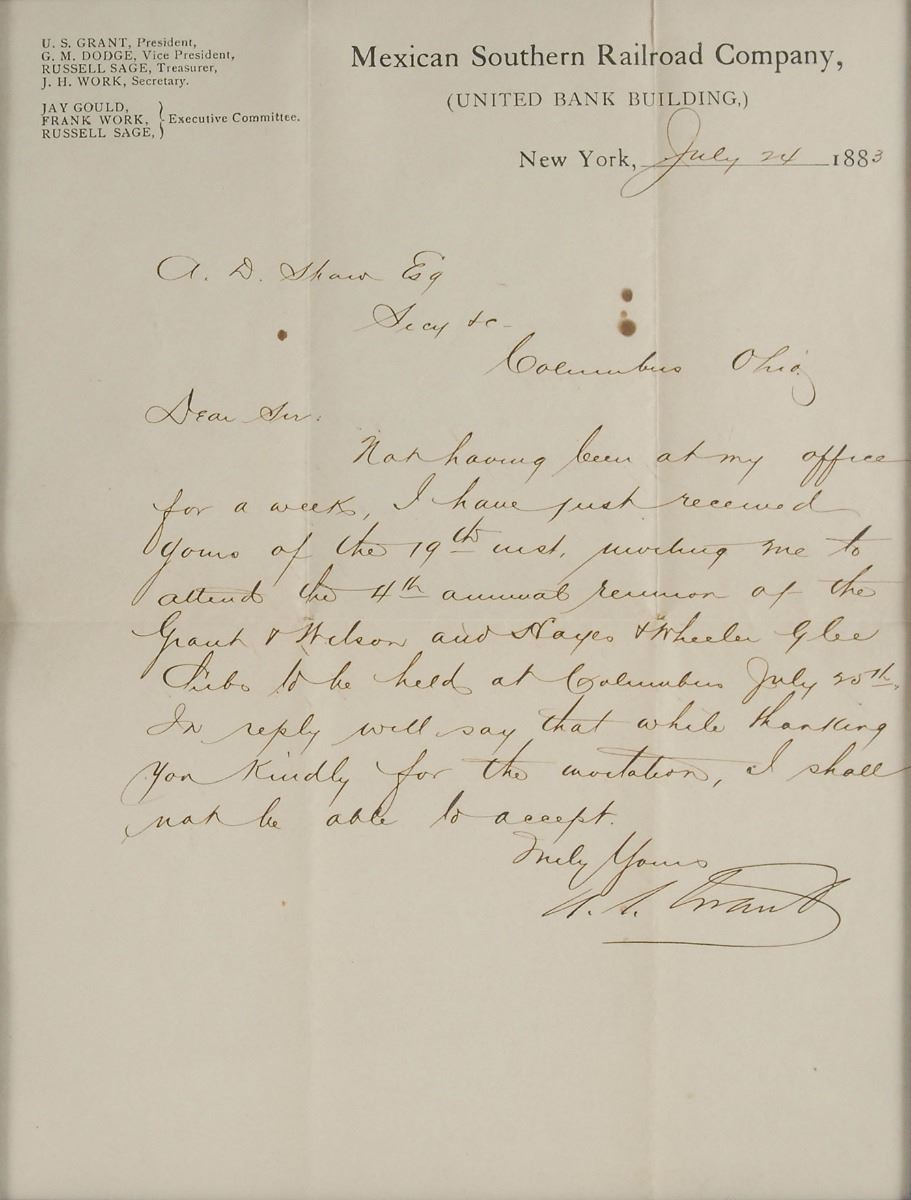 U. S. GRANT, President,
G. M. DODGE, Vice President,
RUSSELL SAGE, Treasurer,
J. H. WORK, Secretary.
JAY GOULD,
FRANK WORK,
RUSSELL SAGE,
Executive Committee.
Mexican Southern Railroad Company,
(UNITED BANK BUILDING,)
New York, July 24 1883
A. D. Shaw Esq
Secy &c
Columbus Ohio,
Dear Sir:
Not having been at my office
for a week, I have just received
yours of the 19th inst. inviting me to
attend the 4th annual reunion of the
Grant & Wilson and Hayes & Wheeler Glee
Clubs to be held at Columbus July 25th.
In reply will say that while thanking
you kindly for the invitation, I shall
not be able to accept.
Truly Yours
U. S. Grant